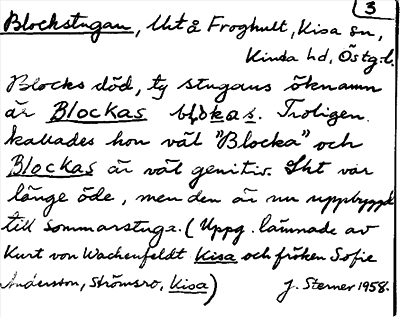 3
Blockstugan, lht å Froghult, Kisa sn,
Kinda hd, Östg.l.
Blocks död, ty stugans öknamn
är Blockas blokas. Troligen
kallades hon väl "Blocka" och
Blockas är väl genitiv. Lht var
länge öde, men den är nu uppbyggd
till sommarstuga. (Uppg. lämnade av
Kurt von Wachenfeldt Kisa och fröken Sofie
Andersson, Strömsro, Kisa)
J. Sterner 1958.